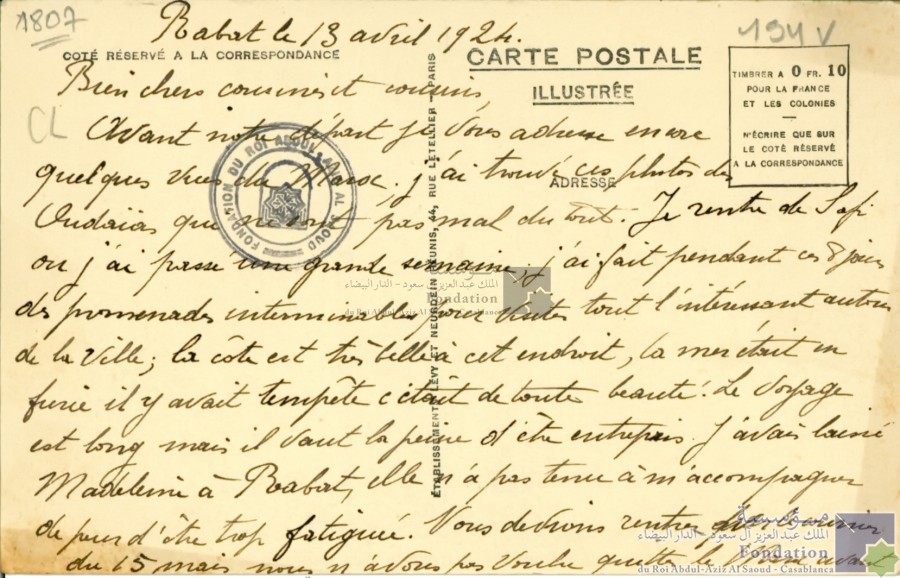 1807
194 V
Rabat le 13 avril 1924.
COTÉ RÉSERVÉ A LA CORRESPONDANCE
CARTE POSTALE
ILLUSTRÉE
TIMBRER A 0 FR. 10
POUR LA FRANCE
ET LES COLONIES
N'ÉCRIRE QUE SUR
LE COTÉ RÉSERVÉ
A LA CORRESPONDANCE
ADRESSE
CL
Bien chers cousines et cousins
Avant notre départ je vous adresse encore
quelques vues du Maroc. j'ai trouvé ces photos des
Oudaïas qui ne sont pas mal du tout. Je rentre de Safi
ou j'ai passé une grande semaine, j'ai fait pendant ces 8 jours
des promenades interminables pour visiter tout l'intéressant autour
de la ville; la côte est très belle à cet endroit, la mer était en
furie il y avait tempête c'était de toute beauté. Le voyage
est long mais il vaut la peine d'être entrepris. J'avais laissé
Madeleine à Rabat, elle n'a pas tenu à m'accompagner
de peur d'être trop fatiguée. Nous devions rentrer
du 15 mais nous n'avons pas voulu quitter le avant
ÉTABLISSEMENTS LÉVY ET NEURDEIN RÉUNIS, 44, RUE LETELLIER - PARIS
FONDATION DU ROI ABDUL AZIZ AL SAOUD
مؤسسة
الملك عبد العزيز آل سعود - الدار البيضاء
Fondation
du Roi Abdul-Aziz Al Saoud - Casablanca
مؤسسة
الملك عبد العزيز آل سعود - الدار البيضاء
Fondation
du Roi Abdul-Aziz Al Saoud - Casablanca